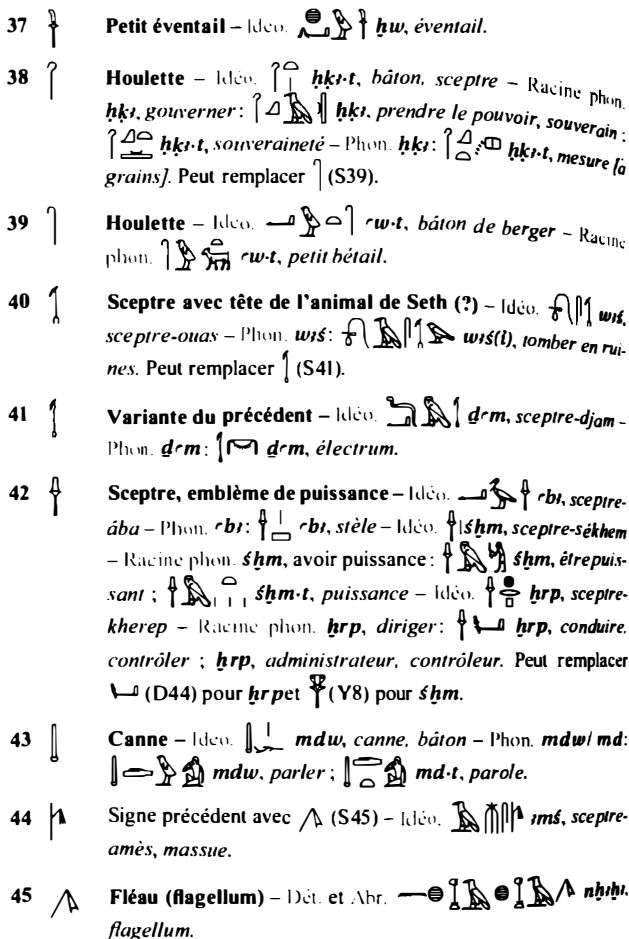 37 Petit éventail – Idéo. ḫw, éventail.
38 Houlette – Idéo. ḥḳꜣ·t, bâton, sceptre – Racine phon.
ḥḳꜣ, gouverner : ḥḳꜣ, prendre le pouvoir, souverain ;
ḥḳꜣ·t, souveraineté – Phon. ḥḳꜣ : ḥḳꜣ·t, mesure [à
grains]. Peut remplacer (S39).
39 Houlette – Idéo. ꜥw·t, bâton de berger – Racine
phon. ꜥw·t, petit bétail.
40 Sceptre avec tête de l'animal de Seth (?) – Idéo. wꜣś,
sceptre-ouas – Phon. wꜣś : wꜣś(i), tomber en rui-
nes. Peut remplacer (S41).
41 Variante du précédent – Idéo. ḏꜥm, sceptre-djam –
Phon. ḏꜥm : ḏꜥm, électrum.
42 Sceptre, emblème de puissance – Idéo. ꜥbꜣ, sceptre-
âba – Phon. ꜥbꜣ : ꜥbꜣ, stèle – Idéo. śḫm, sceptre-sékhem
– Racine phon. śḫm, avoir puissance : śḫm, être puis-
sant ; śḫm·t, puissance – Idéo. ḫrp, sceptre-
kherep – Racine phon. ḫrp, diriger : ḫrp, conduire,
contrôler ; ḫrp, administrateur, contrôleur. Peut remplacer
(D44) pour ḫrp et (Y8) pour śḫm.
43 Canne – Idéo. mdw, canne, bâton – Phon. mdw/ md :
mdw, parler ; md·t, parole.
44 Signe précédent avec (S45) – Idéo. ꜣmś, sceptre-
amès, massue.
45 Fléau (flagellum) – Dét. et Abr. nḫꜣḫꜣ,
flagellum.